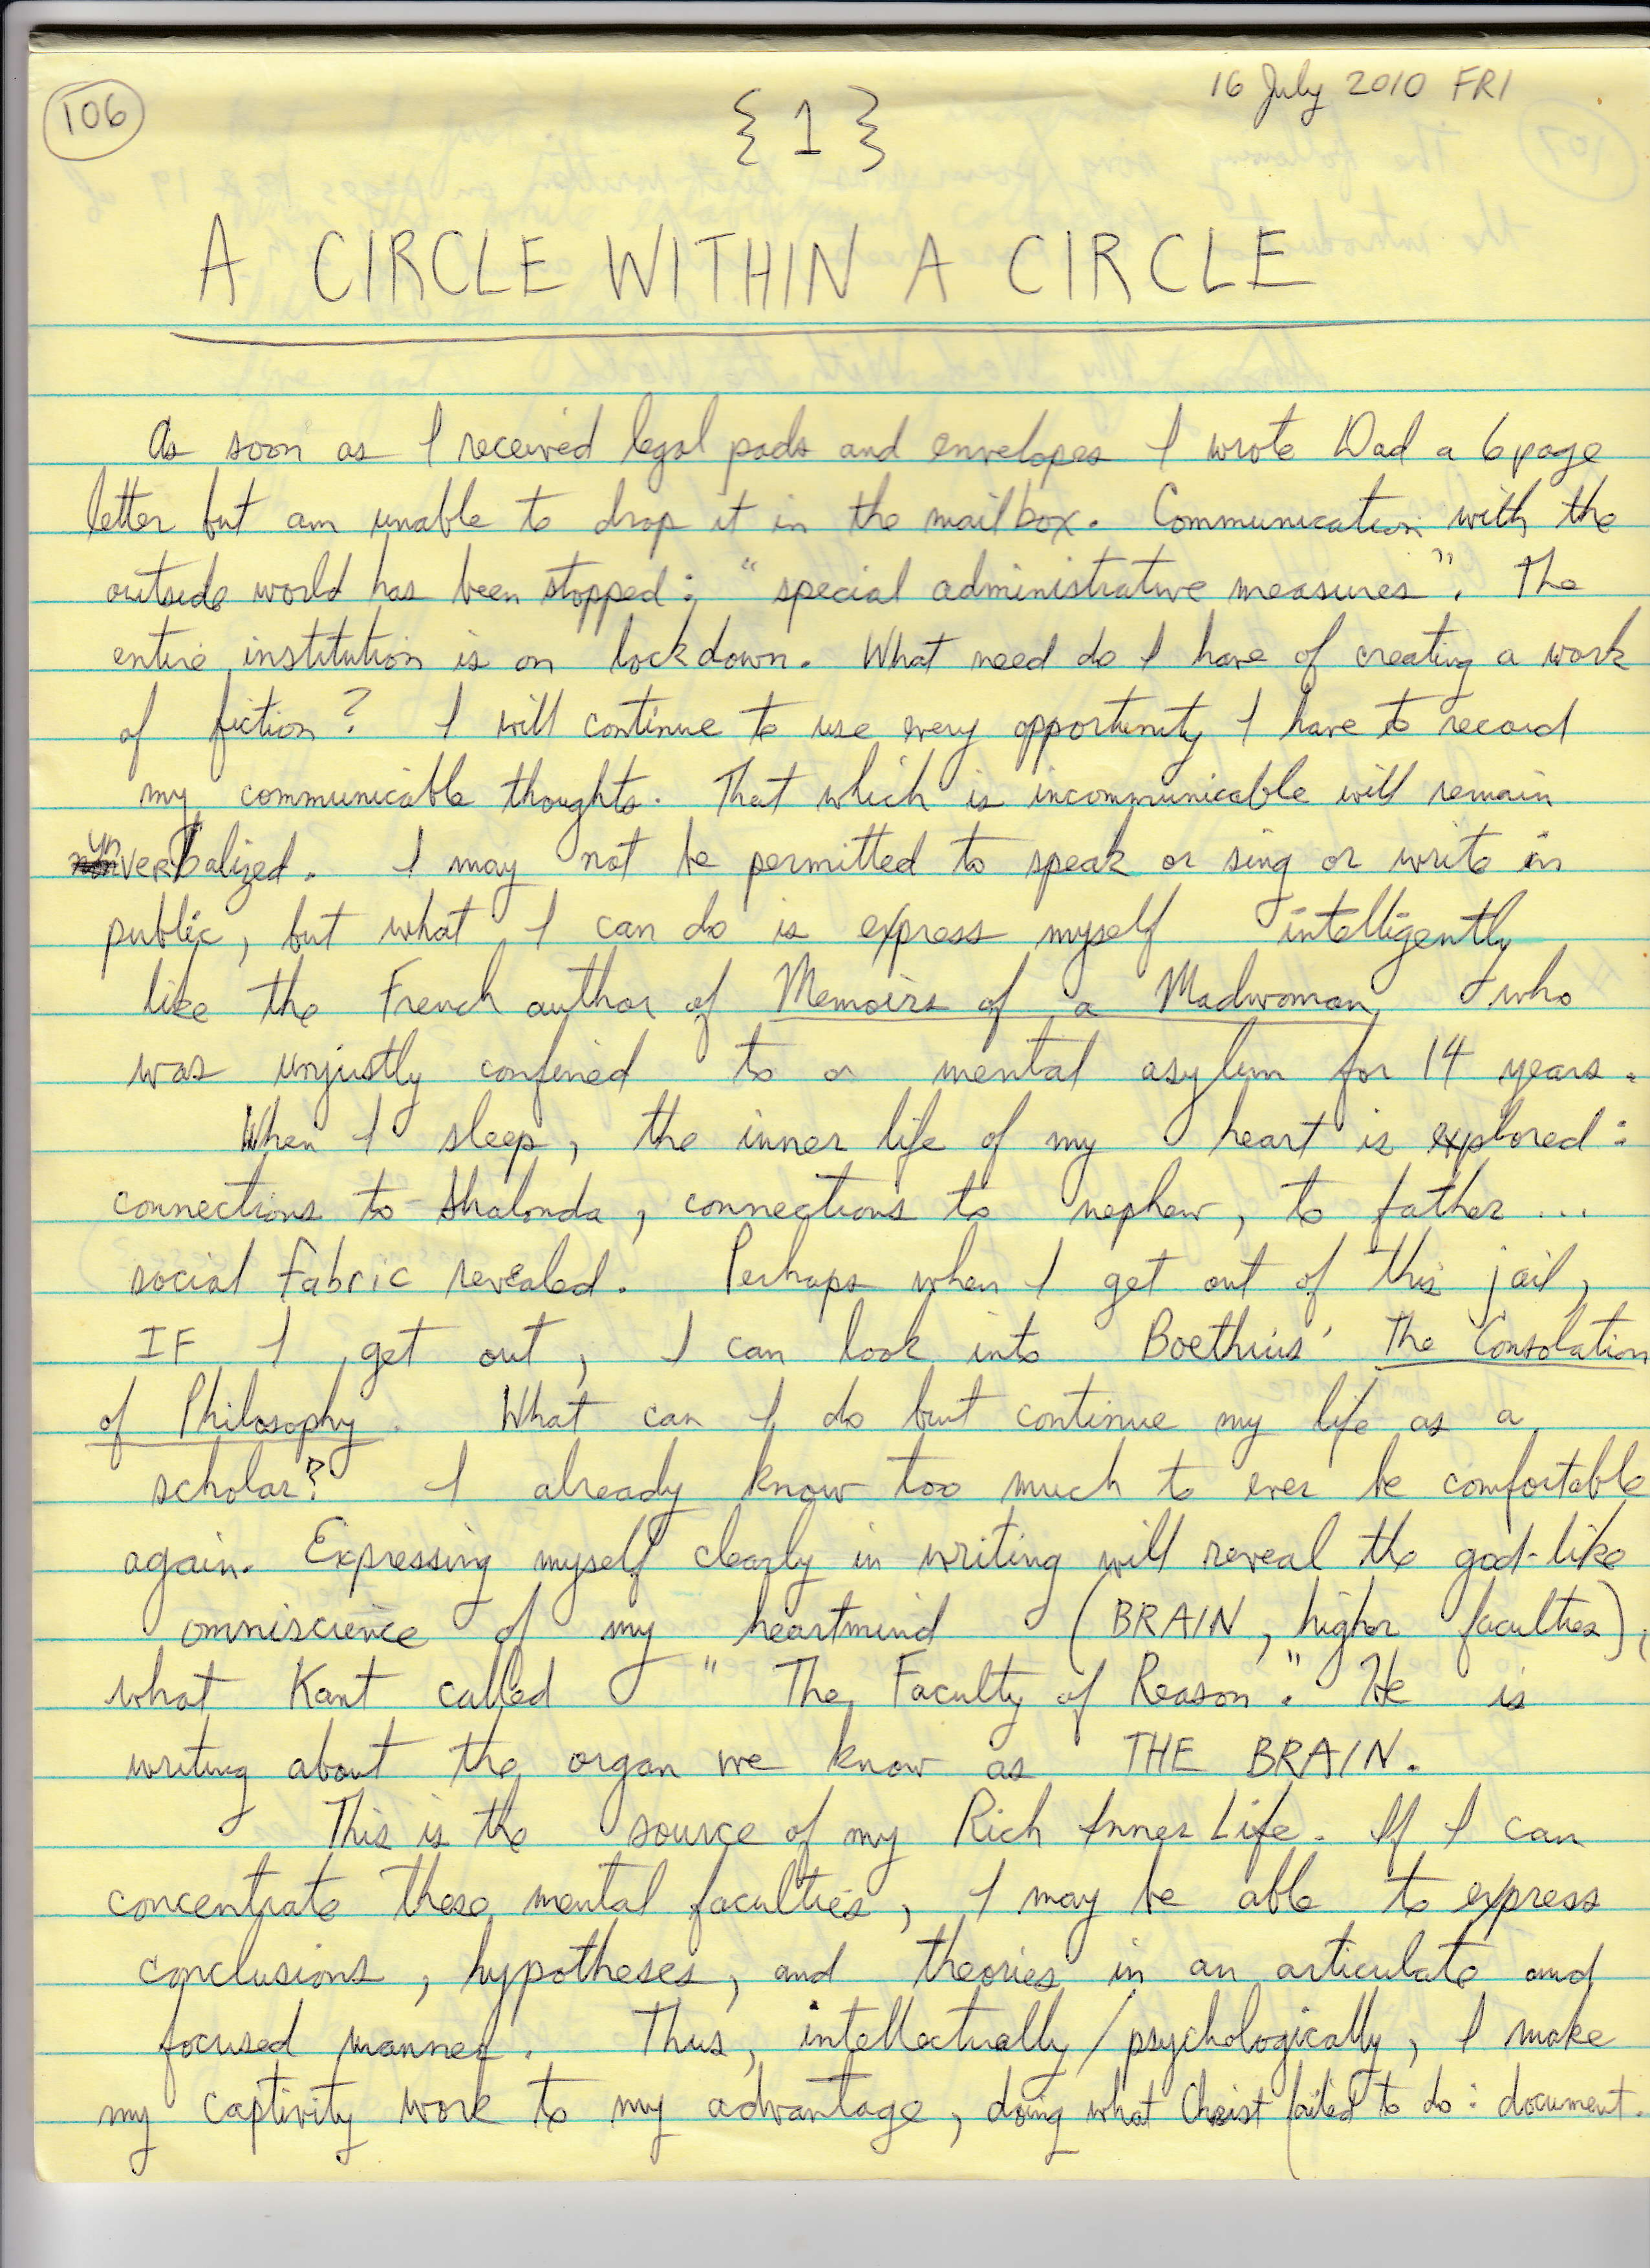 106
16 July 2010 FRI
{1}
A CIRCLE WITHIN A CIRCLE
As soon as I received legal pads and envelopes I wrote Dad a 6 page
letter but am unable to drop it in the mailbox. Communication with the
outside world has been stopped: "special administrative measures". The
entire institution is on lockdown. What need do I have of creating a work
of fiction? I will continue to use every opportunity I have to record
my communicable thoughts. That which is incommunicable will remain
unverbalized. I may not be permitted to speak or sing or write in
public, but what I can do is express myself intelligently
like the French author of Memoirs of a Madwoman, who
was unjustly confined to a mental asylum for 14 years.
When I sleep, the inner life of my heart is explored:
connections to Shalonda, connections to nephew, to father...
social fabric revealed. Perhaps when I get out of this jail,
IF I get out, I can look into Boethius' The Consolation
of Philosophy. What can I do but continue my life as a
scholar? I already know too much to ever be comfortable
again. Expressing myself clearly in writing will reveal the god-like
omniscience of my heartmind (BRAIN, higher faculties),
what Kant called "The Faculty of Reason." He is
writing about the organ we know as THE BRAIN.
This is the source of my Rich Inner Life. If I can
concentrate these mental faculties, I may be able to express
conclusions, hypotheses, and theories in an articulate and
focused manner. Thus, intellectually/psychologically, I make
my captivity work to my advantage, doing what Christ failed to do: document.